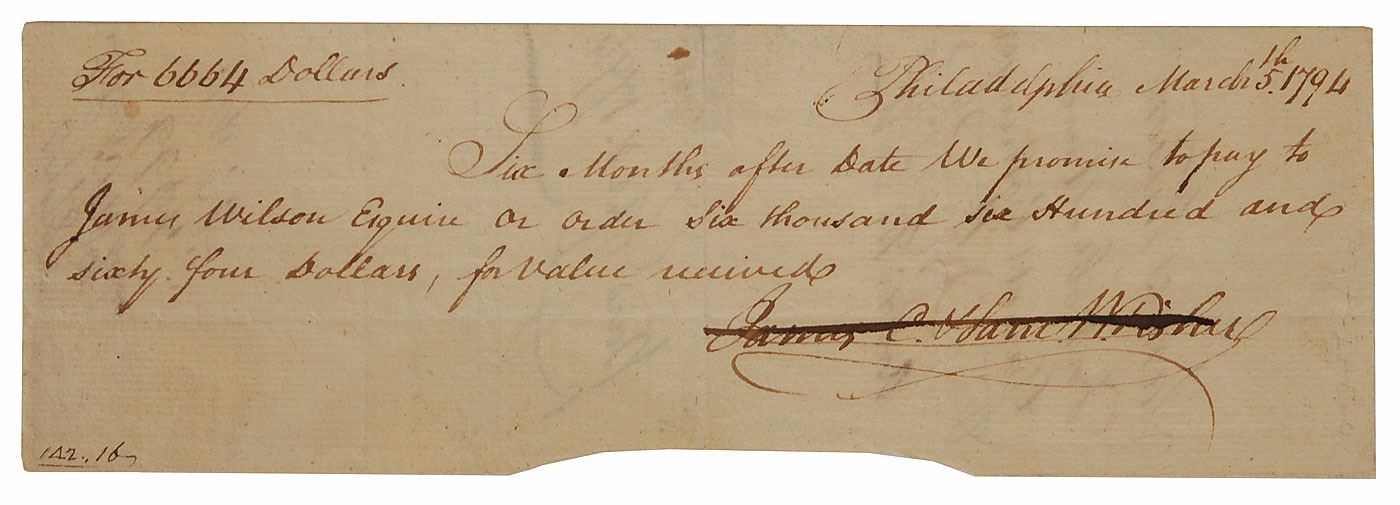 For 6664 Dollars.
Philadelphia March 5th. 1794
Six Months after Date We promise to pay to
James Wilson Esquire or order six thousand six Hundred and
sixty four Dollars, for Value received
James C. & Saml W. Fisher
142..16